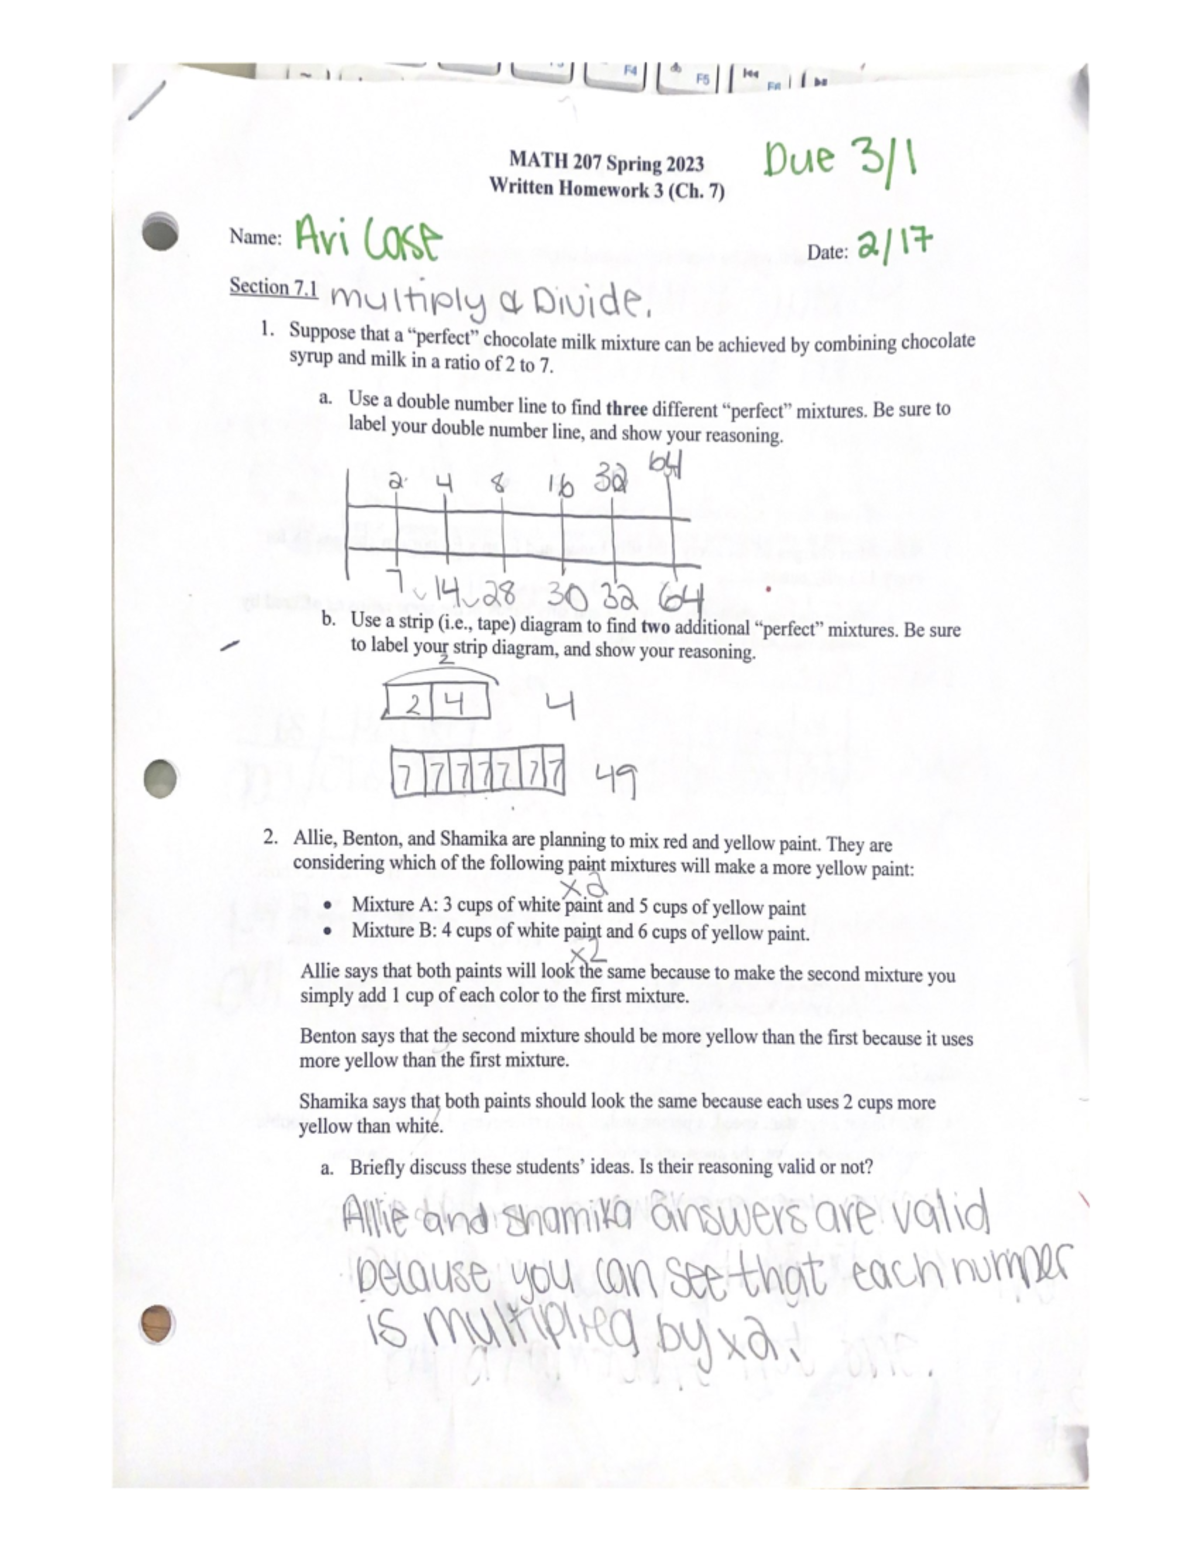 F4 F5 F6
MATH 207 Spring 2023
Due 3/1
Written Homework 3 (Ch. 7)
Name: Ari Case
Date: 2/17
Section 7.1 multiply & Divide.
1. Suppose that a “perfect” chocolate milk mixture can be achieved by combining chocolate
syrup and milk in a ratio of 2 to 7.
a. Use a double number line to find three different “perfect” mixtures. Be sure to
label your double number line, and show your reasoning.
2 4 8 16 32 64
7 14 28 30 32 64
b. Use a strip (i.e., tape) diagram to find two additional “perfect” mixtures. Be sure
to label your strip diagram, and show your reasoning.
2
2 4 4
7 7 7 7 7 7 7 49
2. Allie, Benton, and Shamika are planning to mix red and yellow paint. They are
considering which of the following paint mixtures will make a more yellow paint:
x2
• Mixture A: 3 cups of white paint and 5 cups of yellow paint
• Mixture B: 4 cups of white paint and 6 cups of yellow paint.
x2
Allie says that both paints will look the same because to make the second mixture you
simply add 1 cup of each color to the first mixture.
Benton says that the second mixture should be more yellow than the first because it uses
more yellow than the first mixture.
Shamika says that both paints should look the same because each uses 2 cups more
yellow than white.
a. Briefly discuss these students’ ideas. Is their reasoning valid or not?
Allie and Shamika answers are valid
because you can see that each number
is multiplied by x2.